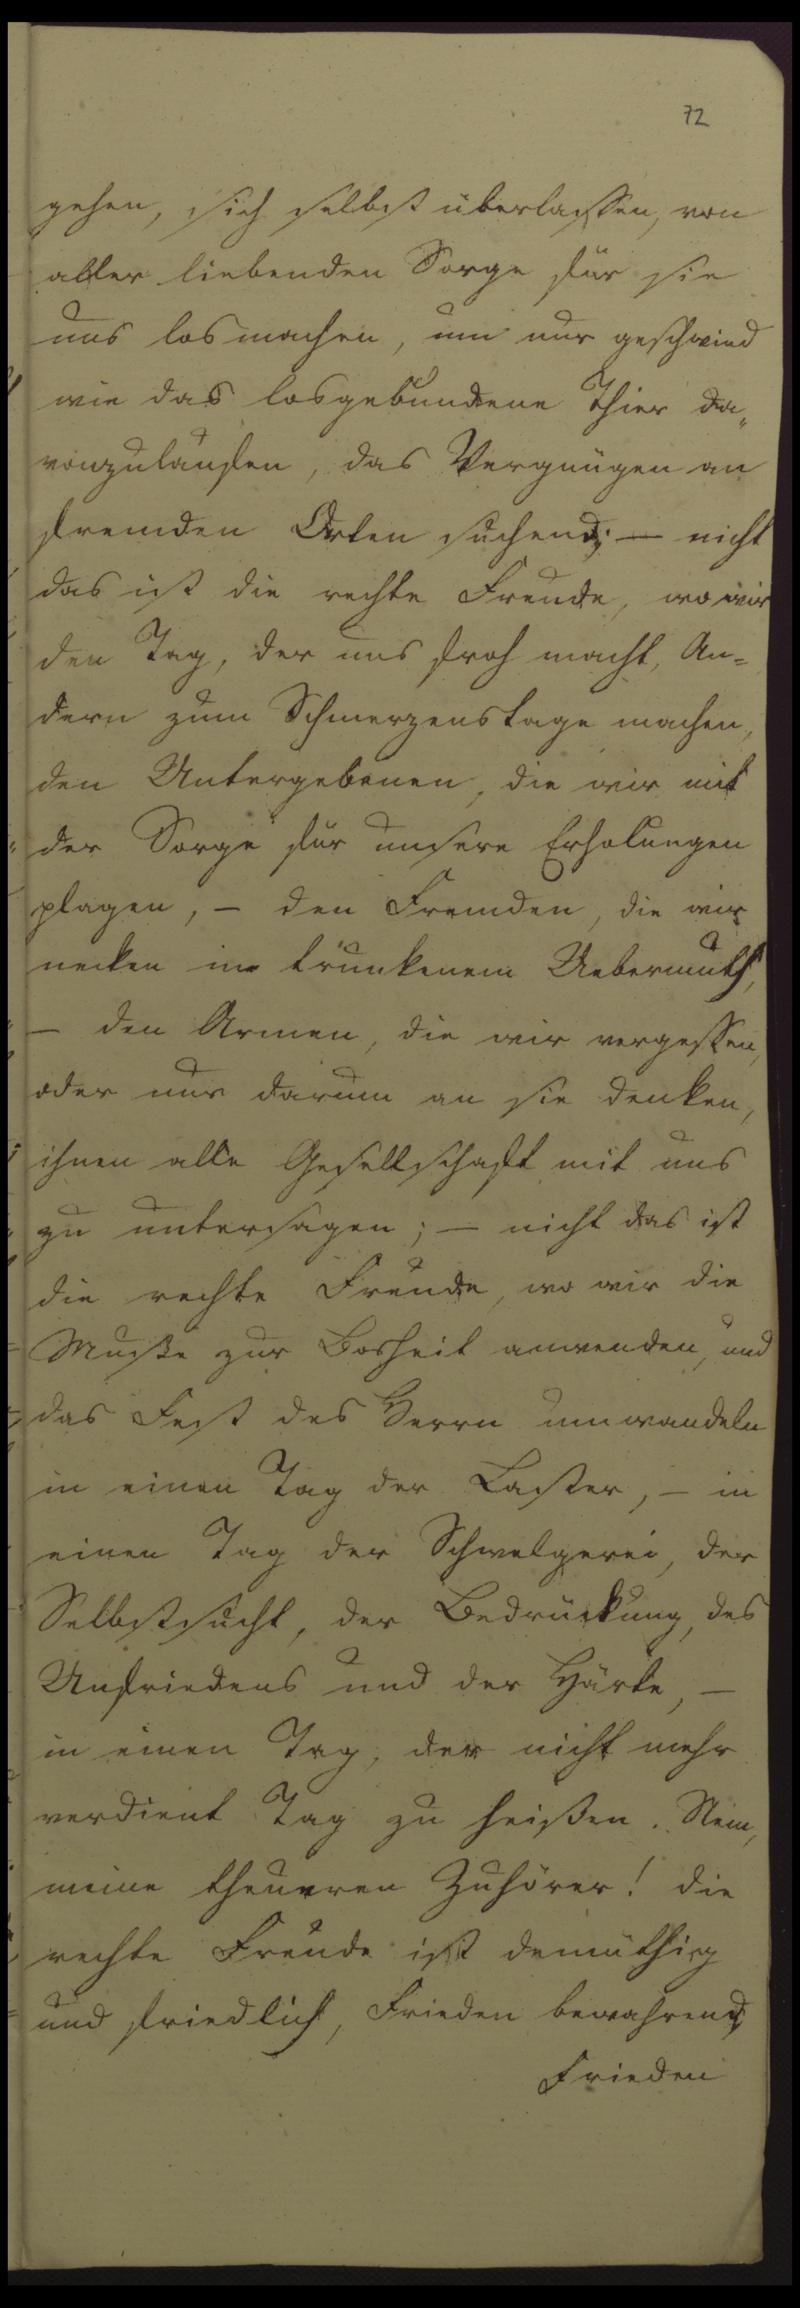 72
gehen, sich selbst überlassen, von
aller liebenden Sorge für sie
uns losmachen, um nur geschwind
wie das losgebundene Thier da„
vonzulaufen, das Vergnügen an
fremden Orten suchend; — nicht
das ist die rechte Freude, wo wir
den Tag, der uns froh macht, An=
dern zum Schmerzenstage machen,
den Untergebenen, die wir mit
der Sorge für unsere Erholungen
plagen, — den Fremden, die wir
necken in trunkenem Uebermuth,
— den Armen, die wir vergessen,
oder nur darum an sie denken,
ihnen alle Gesellschaft mit uns
zu untersagen; — nicht das ist
die rechte Freude, wo wir die
Muße zur Bosheit anwenden, und
das Fest des Herrn umwandeln
in einen Tag der Laster, — in
einen Tag der Schwelgerei, der
Selbstsucht, der Bedrückung, des
Unfriedens und der Härte, —
in einen Tag, der nicht mehr
verdient Tag zu heißen. Nein,
meine theueren Zuhörer! die
rechte Freude ist demüthig
und friedlich, Frieden bewahrend,
Frieden